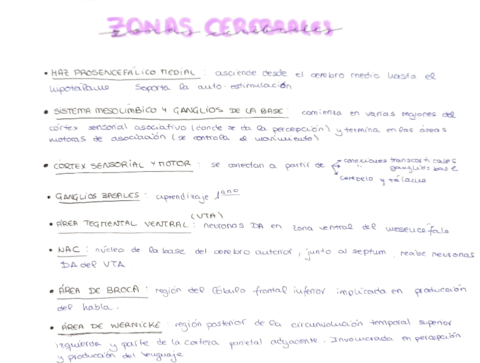 ZONAS CEREBRALES
• HAZ PROSENCEFÁLICO MEDIAL : asciende desde el cerebro medio hasta el
hipotálamo Soporta la auto-estimulación
• SISTEMA MESOLÍMBICO Y GANGLIOS DE LA BASE : comienza en varias regiones del
córtex sensorial asociativo (donde se da la percepción) y termina en las áreas
motoras de asociación (se controla el movimiento)
• CORTEX SENSORIAL Y MOTOR : se conectan a partir de conexiones transcorticales
ganglios base
cerebelo y tálamo
• GANGLIOS BASALES : aprendizaje
(VTA)
• ÁREA TEGMENTAL VENTRAL : neuronas DA en zona ventral del mesencéfalo
• NAC : núcleo de la base del cerebro anterior, junto al septum, recibe neuronas
DA del VTA
• ÁREA DE BROCA : región del lóbulo frontal inferior implicada en producción
del habla.
• ÁREA DE WERNICKE : región posterior de la circunvolución temporal superior
izquierda y parte de la corteza parietal adyacente. Involucrada en percepción
y producción del lenguaje